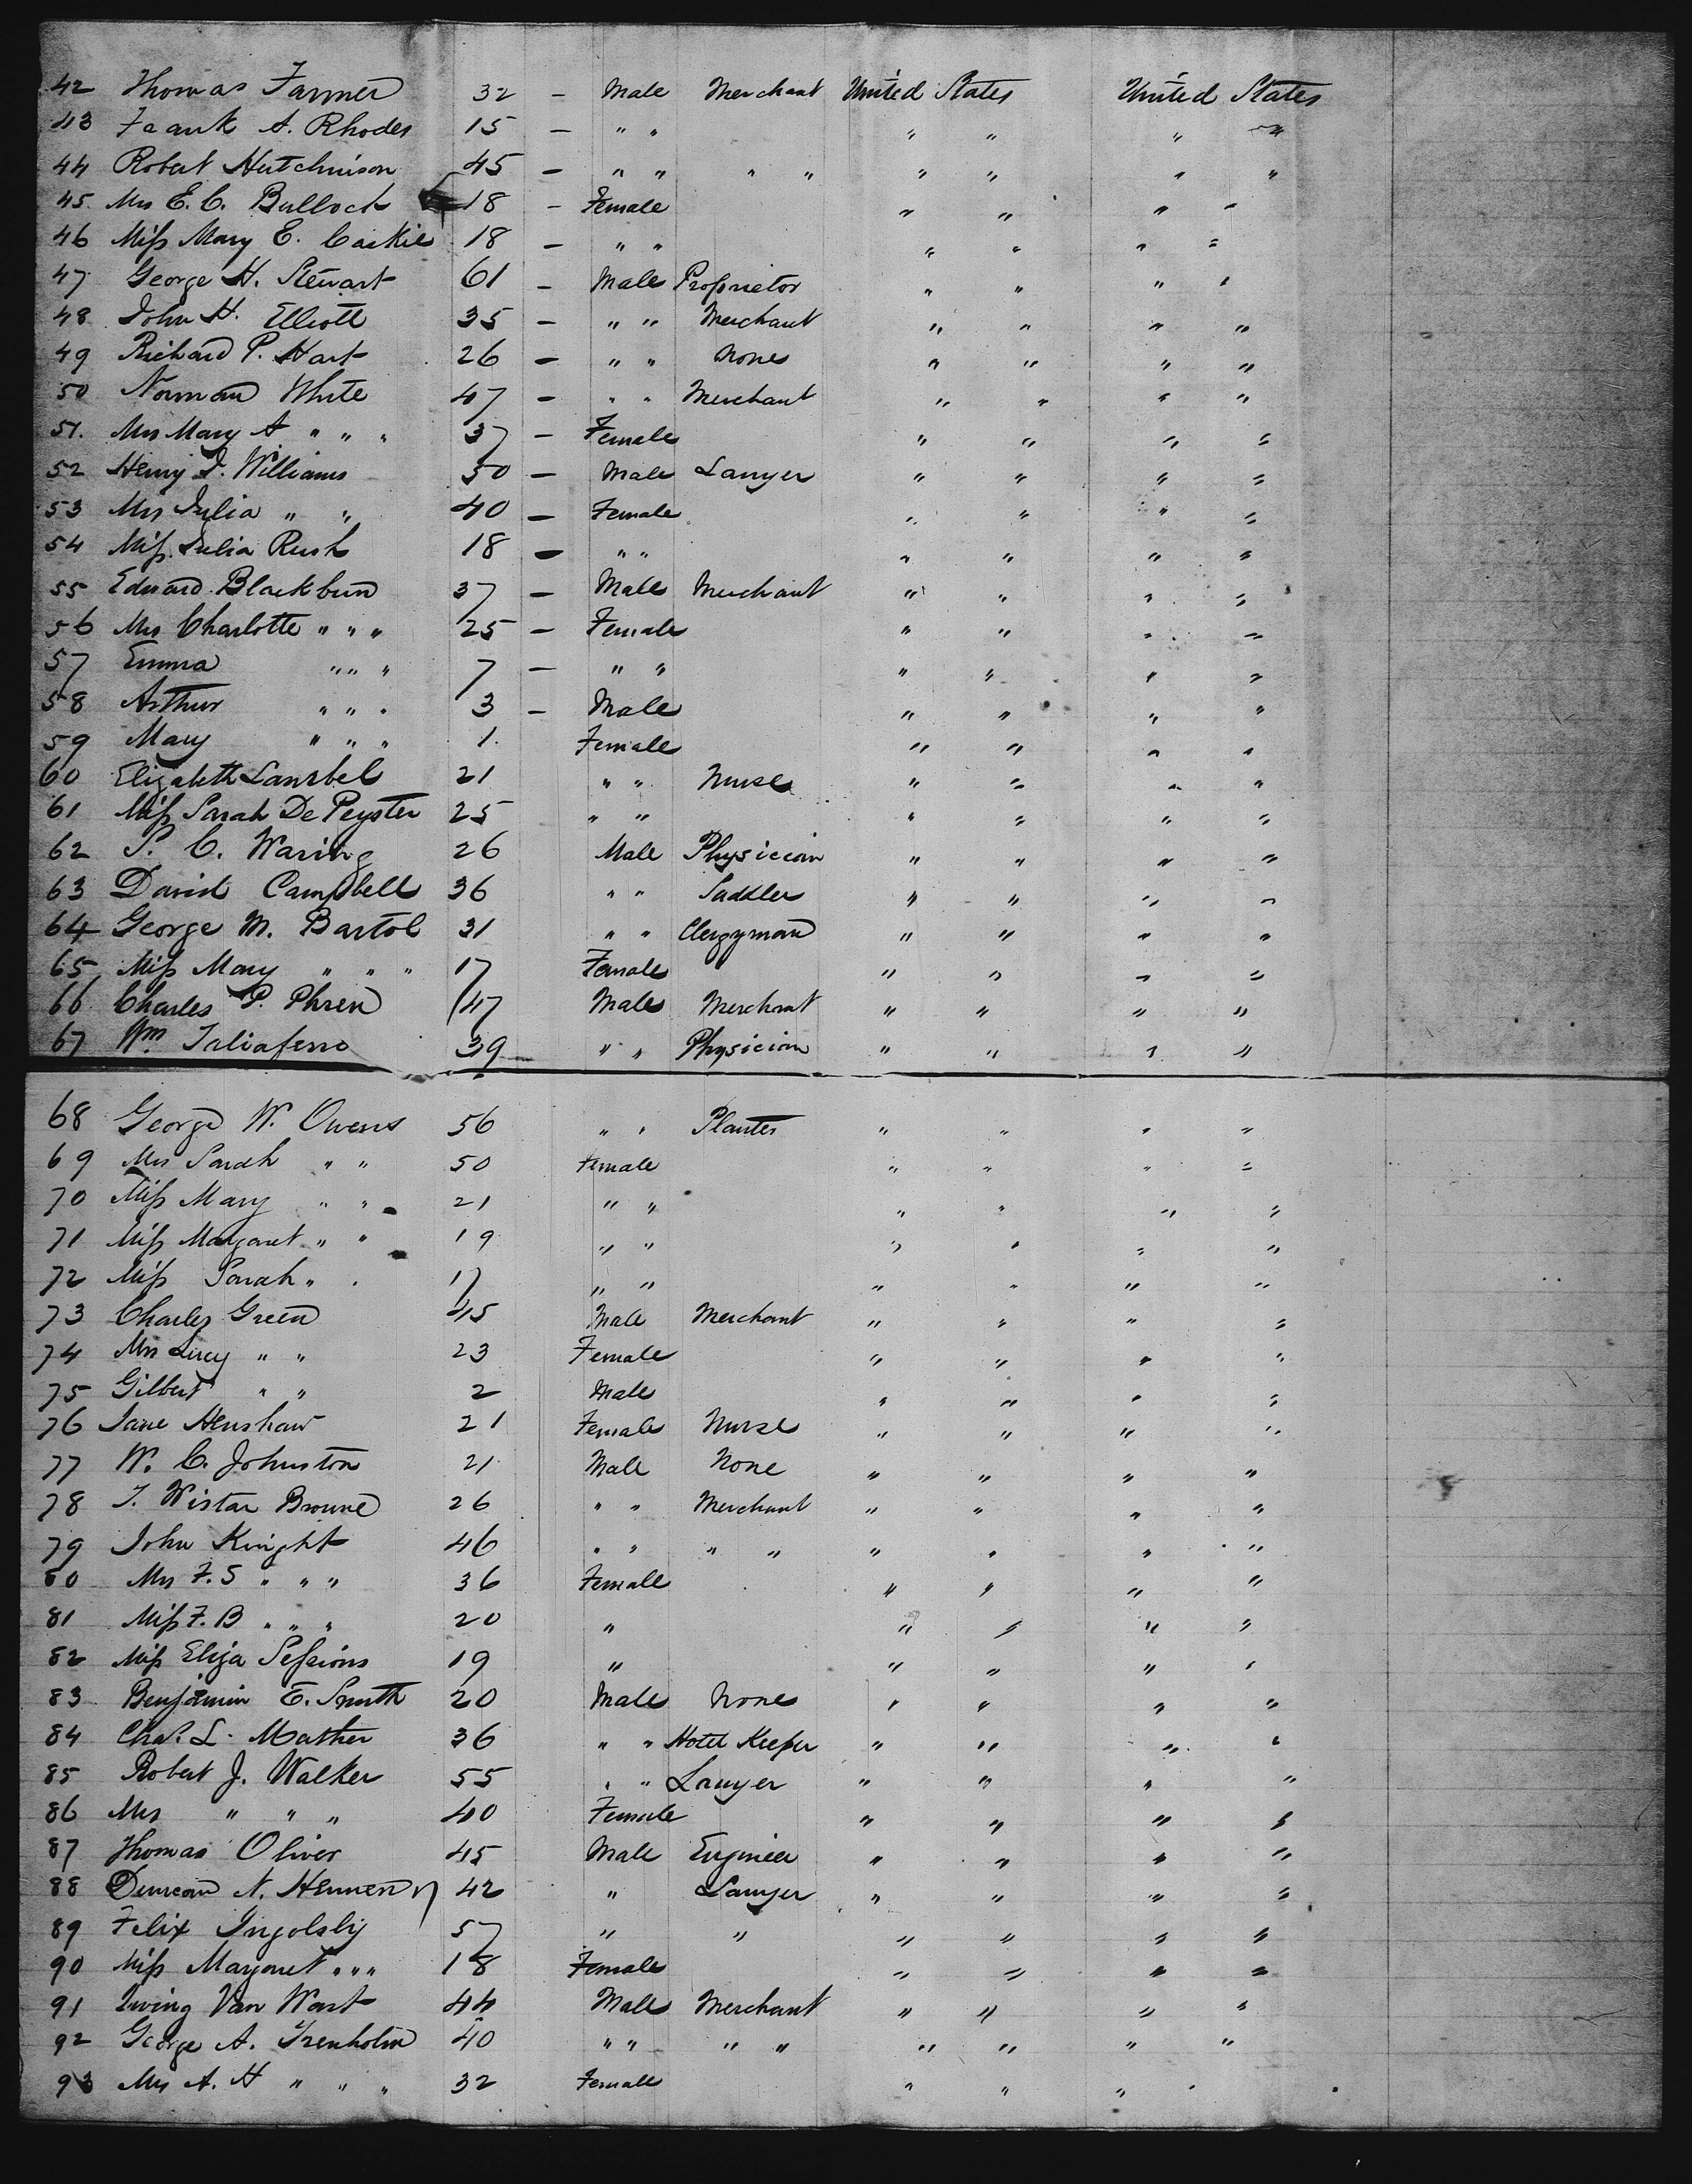 42 Thomas Farmer 32 – Male Merchant United States United States
43 Frank A. Rhodes 15 – " " " " " "
44 Robert Hutchinson 45 – " " " " " " " "
45 Mrs E. C. Bullock 18 – Female " " " "
46 Miss Mary E. Caskie 18 – " " " " " "
47 George H. Stewart 61 – Male Proprietor " " " "
48 John H. Elliott 35 – " " Merchant " " " "
49 Richard P. Hart 26 – " " None " " " "
50 Norman White 47 – " " Merchant " " " "
51. Mrs Mary A " " " 37 – Female " " " "
52 Henry J. Williams 50 – Male Lawyer " " " "
53 Mrs Julia " " 40 – Female " " " "
54 Miss Julia Rush 18 – " " " " " "
55 Edward Blackburn 37 – Male Merchant " " " "
56 Mrs Charlotte " " " 25 – Female " " " "
57 Emma " " " 7 – " " " " " "
58 Arthur " " " 3 – Male " " " "
59 Mary " " " 1. Female " " " "
60 Elizabeth 21 " " Nurse " " " "
61 Miss Sarah De Peyster 25 " " " " " "
62 C. Waring 26 Male Physician " " " "
63 David Campbell 36 " " Saddler " " " "
64 George M. Bartol 31 " " Clergyman " " " "
65 Miss Mary " " " 17 Female " " " "
66 Charles P. 47 Male Merchant " " " "
67 Wm. Taliaferro 39 " " Physician " " " "
68 George W. Owens 56 " " Planter " " " "
69 Mrs Sarah " " 50 Female " " " "
70 Miss Mary " " 21 " " " " " "
71 Miss Margaret " " 19 " " " " " "
72 Miss Sarah " " 17 " " " " " "
73 Charles Green 45 Male Merchant " " " "
74 Mrs Lucy " " 23 Female " " " "
75 Gilbert " " 2 Male " " " "
76 Jane Henshaw 21 Female Nurse " " " "
77 W. C. Johnston 21 Male None " " " "
78 T. Wistar Browne 26 " " Merchant " " " "
79 John Knight 46 " " " " " " " "
80 Mrs F. S " " " 36 Female " " " "
81 Miss F. B " " " 20 " " " " "
82 Miss Eliza Sessions 19 " " " " "
83 Benjamin E. Smith 20 Male None " " " "
84 Chas. L. Mather 36 " " Hotel Keeper " " " "
85 Robert J. Walker 55 " " Lawyer " " " "
86 Mrs " " " 40 Female " " " "
87 Thomas Oliver 45 Male Engineer " " " "
88 Duncan N. Hennen 42 " Lawyer " " " "
89 Felix Ingolsby 57 " " " " " "
90 Miss Margaret " " " 18 Female " " " "
91 Irving Van Wart 44 Male Merchant " " " "
92 George A. Trenholm 40 " " " " " " " "
93 Mrs A. H " " " 32 Female " " " "